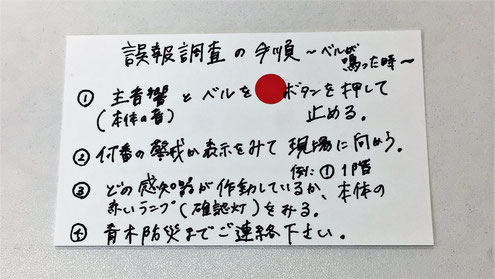 誤報調査の手順 〜ベルが
鳴った時〜
① 主音響とベルを ボタンを押して
(本体の音) 止める。
② 何番の警戒か表示をみて現場に向かう。
例に① 1階
③ どの感知器が作動しているか、本体の
赤いランプ(確認灯)をみる。
④ 青木防災までご連絡下さい。